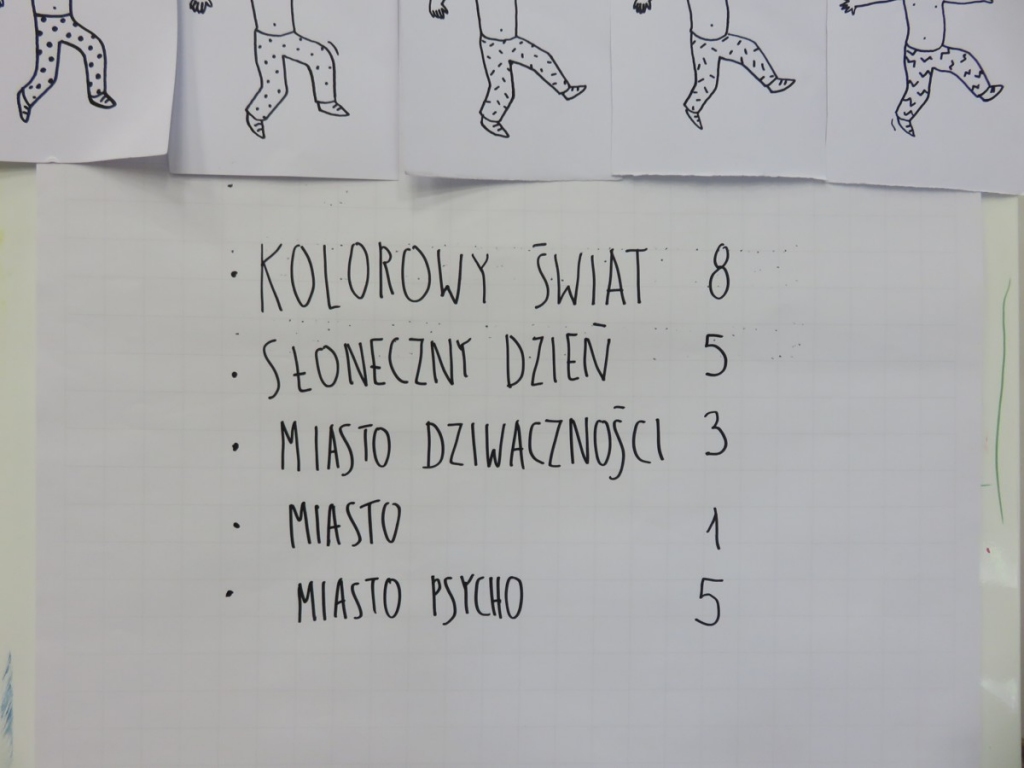 · KOLOROWY ŚWIAT 8
· SŁONECZNY DZIEŃ 5
· MIASTO DZIWACZNOŚCI 3
· MIASTO 1
· MIASTO PSYCHO 5